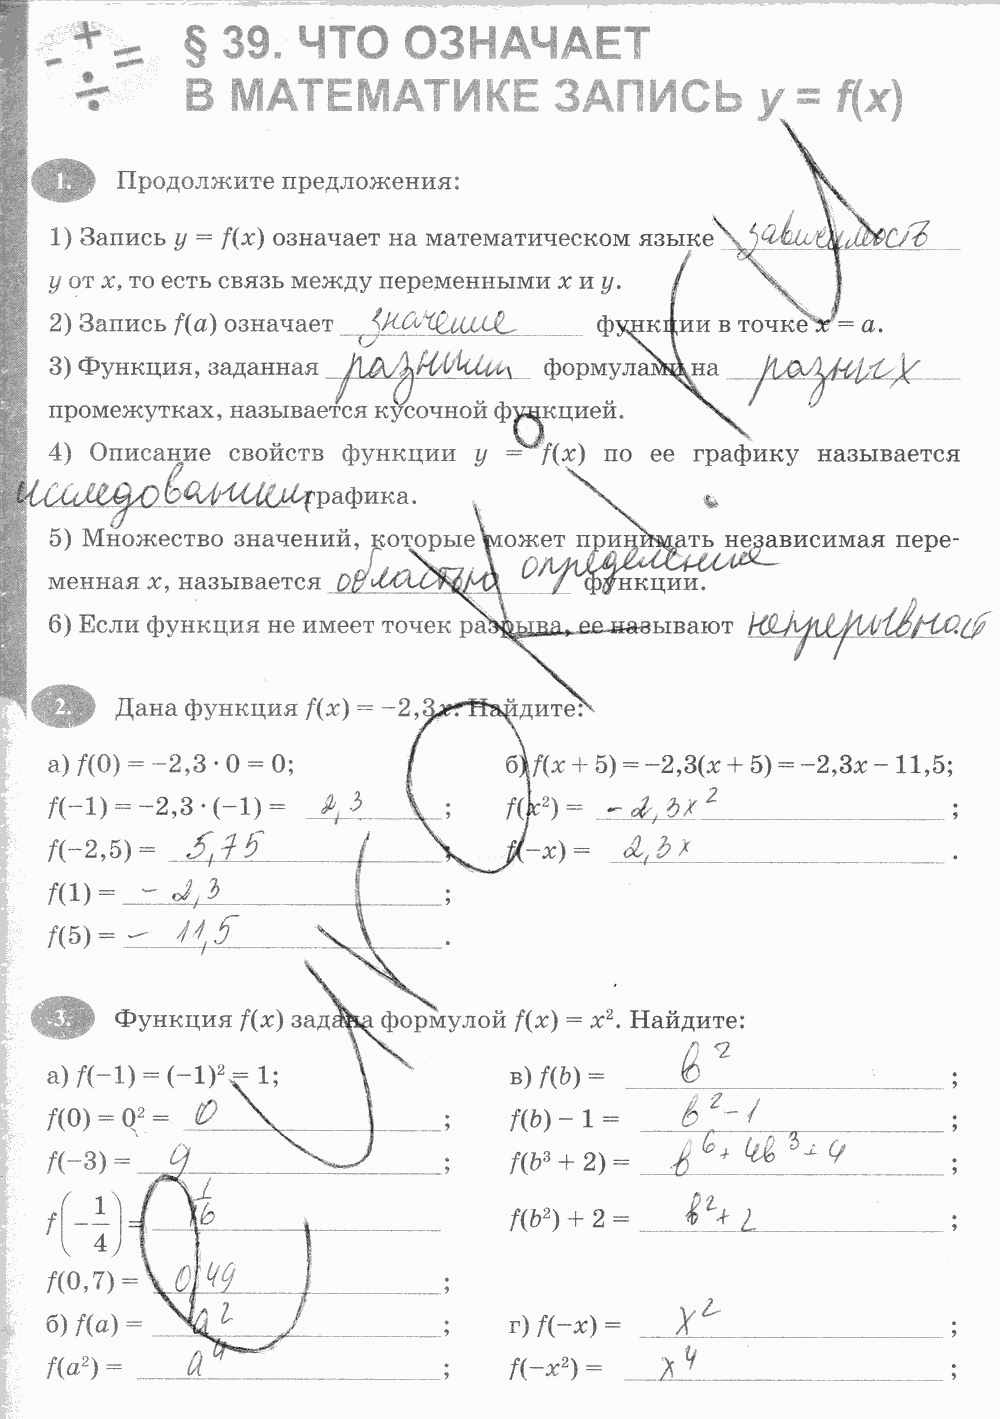 § 39. ЧТО ОЗНАЧАЕТ
В МАТЕМАТИКЕ ЗАПИСЬ y = f(x)
1. Продолжите предложения:
1) Запись y = f(x) означает на математическом языке зависимость
y от x, то есть связь между переменными x и y.
2) Запись f(a) означает значение функции в точке x = a.
3) Функция, заданная разными формулами на разных
промежутках, называется кусочной функцией.
4) Описание свойств функции y = f(x) по ее графику называется
исследованием графика.
5) Множество значений, которые может принимать независимая пере-
менная x, называется областью определения функции.
6) Если функция не имеет точек разрыва, ее называют непрерывной.
2. Дана функция f(x) = −2,3x. Найдите:
а) f(0) = −2,3 · 0 = 0;
б) f(x + 5) = −2,3(x + 5) = −2,3x − 11,5;
f(−1) = −2,3 · (−1) = 2,3;
f(x²) = -2,3x²;
f(−2,5) = 5,75;
f(−x) = 2,3x.
f(1) = -2,3;
f(5) = - 11,5.
3. Функция f(x) задана формулой f(x) = x². Найдите:
а) f(−1) = (−1)² = 1;
в) f(b) = b²;
f(0) = 0² = 0;
f(b) − 1 = b²-1;
f(−3) = 9;
f(b³ + 2) = b⁶+4b³+4;
f(−1/4) = 1/16
f(b²) + 2 = b²+2;
f(0,7) = 0,49;
б) f(a) = a²;
г) f(−x) = x²;
f(a²) = a⁴;
f(−x²) = x⁴;